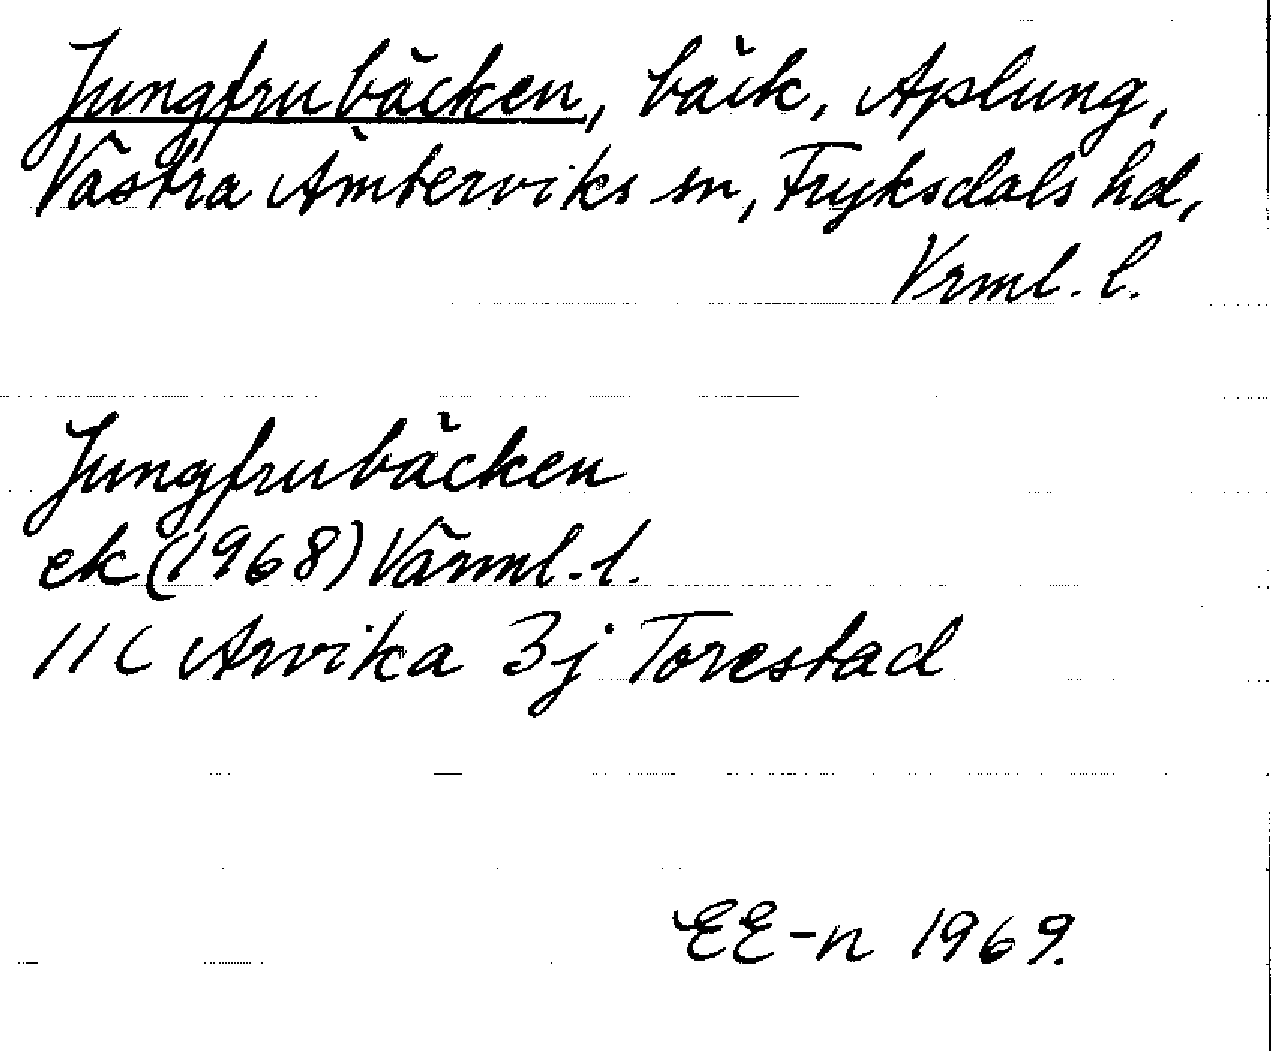 Jungfrubäcken, bäck, Aplung,
Västra Ämterviks sn, Fryksdals hd,
Vrml. l.
Jungfrubäcken
ek (1968) Värml. l.
11C Arvika 3j Torestad
EE-n 1969.